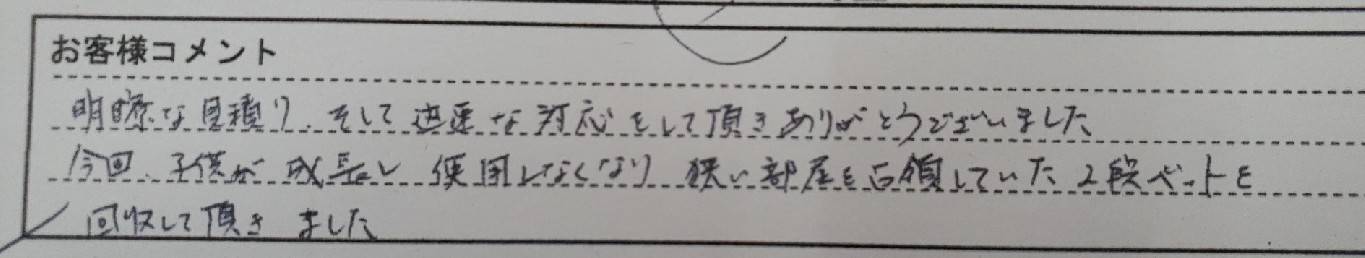 お客様コメント
明瞭な見積り、そして迅速な対応をして頂きありがとうございました
今回、子供が成長し 使用しなくなり 狭い部屋を占領していた2段ベットを
回収して頂きました